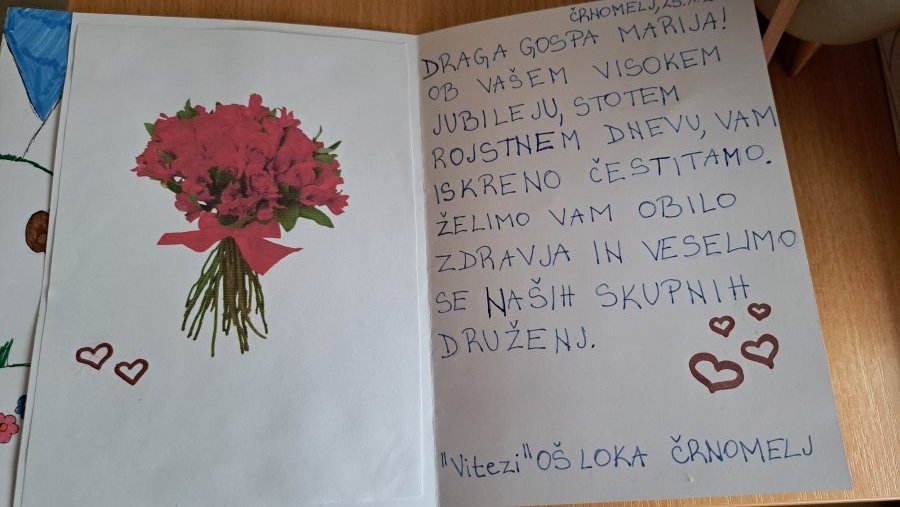 ČRNOMELJ, 25.
DRAGA GOSPA MARIJA!
OB VAŠEM VISOKEM
JUBILEJU, STOTEM
ROJSTNEM DNEVU, VAM
ISKRENO ČESTITAMO.
ŽELIMO VAM OBILO
ZDRAVJA IN VESELIMO
SE NAŠIH SKUPNIH
DRUŽENJ.
"Vitezi" OŠ LOKA ČRNOMELJ